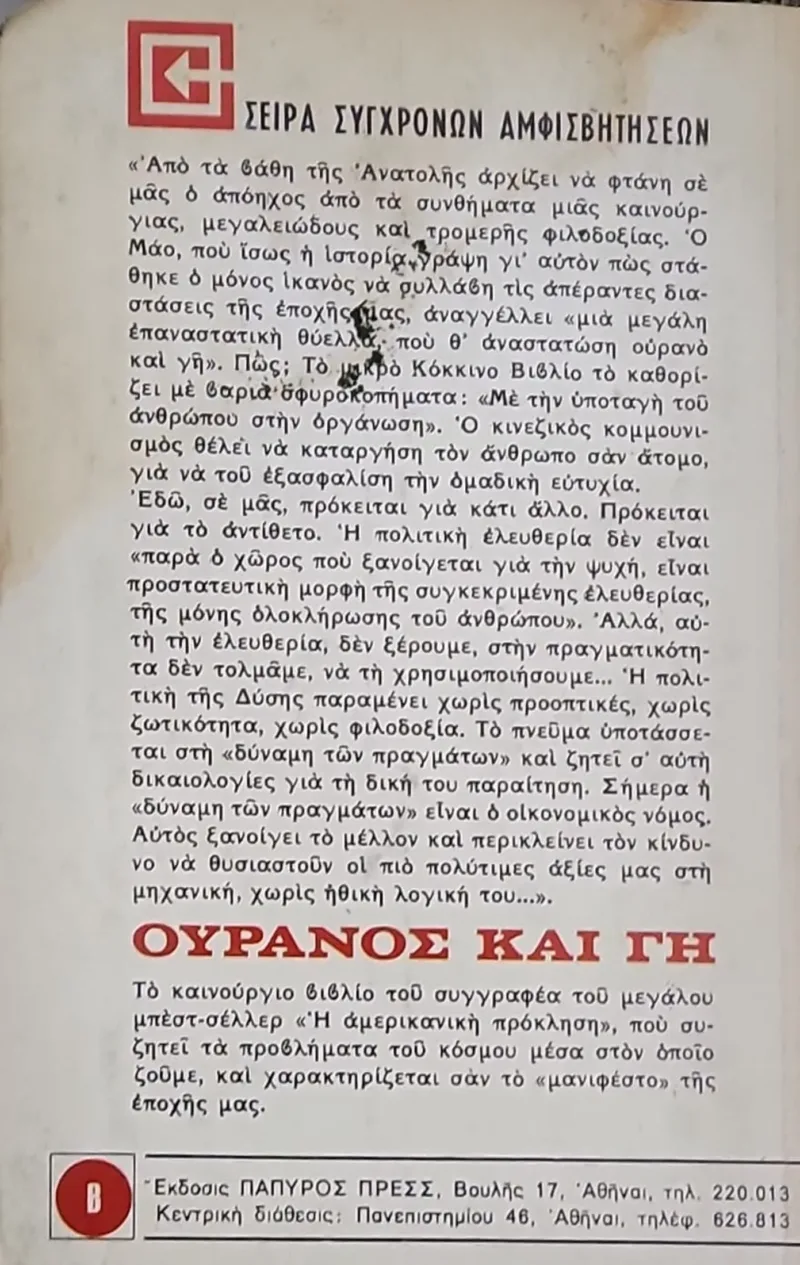 ΣΕΙΡΑ ΣΥΓΧΡΟΝΩΝ ΑΜΦΙΣΒΗΤΗΣΕΩΝ
«Ἀπὸ τὰ βάθη τῆς Ἀνατολῆς ἀρχίζει νὰ φτάνη σὲ
μᾶς ὁ ἀπόηχος ἀπὸ τὰ συνθήματα μιᾶς καινούρ-
γιας, μεγαλειώδους καὶ τρομερῆς φιλοδοξίας. Ὁ
Μάο, ποὺ ἴσως ἡ ἱστορία γράψη γι' αὐτὸν πὼς στά-
θηκε ὁ μόνος ἱκανὸς νὰ συλλάβη τὶς ἀπέραντες δια-
στάσεις τῆς ἐποχῆς μας, ἀναγγέλλει «μιὰ μεγάλη
ἐπαναστατικὴ θύελλα, ποὺ θ' ἀναστατώση οὐρανὸ
καὶ γῆ». Πῶς; Τὸ μικρὸ Κόκκινο Βιβλίο τὸ καθορί-
ζει μὲ βαριὰ σφυροκοπήματα: «Μὲ τὴν ὑποταγὴ τοῦ
ἀνθρώπου στὴν ὀργάνωση». Ὁ κινεζικὸς κομμουνι-
σμὸς θέλει νὰ καταργήση τὸν ἄνθρωπο σὰν ἄτομο,
γιὰ νὰ τοῦ ἐξασφαλίση τὴν ὁμαδικὴ εὐτυχία.
Ἐδῶ, σὲ μᾶς, πρόκειται γιὰ κάτι ἄλλο. Πρόκειται
γιὰ τὸ ἀντίθετο. Ἡ πολιτικὴ ἐλευθερία δὲν εἶναι
«παρὰ ὁ χῶρος ποὺ ξανοίγεται γιὰ τὴν ψυχή, εἶναι
προστατευτικὴ μορφὴ τῆς συγκεκριμένης ἐλευθερίας,
τῆς μόνης ὁλοκλήρωσης τοῦ ἀνθρώπου». Ἀλλά, αὐ-
τὴ τὴν ἐλευθερία, δὲν ξέρουμε, στὴν πραγματικότη-
τα δὲν τολμᾶμε, νὰ τὴ χρησιμοποιήσουμε... Ἡ πολι-
τικὴ τῆς Δύσης παραμένει χωρὶς προοπτικές, χωρὶς
ζωτικότητα, χωρὶς φιλοδοξία. Τὸ πνεῦμα ὑποτάσσε-
ται στὴ «δύναμη τῶν πραγμάτων» καὶ ζητεῖ σ' αὐτὴ
δικαιολογίες γιὰ τὴ δική του παραίτηση. Σήμερα ἡ
«δύναμη τῶν πραγμάτων» εἶναι ὁ οἰκονομικὸς νόμος.
Αὐτὸς ξανοίγει τὸ μέλλον καὶ περικλείνει τὸν κίνδυ-
νο νὰ θυσιαστοῦν οἱ πιὸ πολύτιμες ἀξίες μας στὴ
μηχανική, χωρὶς ἠθικὴ λογική του...».
ΟΥΡΑΝΟΣ ΚΑΙ ΓΗ
Τὸ καινούργιο βιβλίο τοῦ συγγραφέα τοῦ μεγάλου
μπὲστ-σέλλερ «Ἡ ἀμερικανικὴ πρόκληση», ποὺ συ-
ζητεῖ τὰ προβλήματα τοῦ κόσμου μέσα στὸν ὁποῖο
ζοῦμε, καὶ χαρακτηρίζεται σὰν τὸ «μανιφέστο» τῆς
ἐποχῆς μας.
Β
Ἔκδοσις ΠΑΠΥΡΟΣ ΠΡΕΣΣ, Βουλῆς 17, Ἀθῆναι, τηλ. 220.013
Κεντρικὴ διάθεσις: Πανεπιστημίου 46, Ἀθῆναι, τηλέφ. 626.813